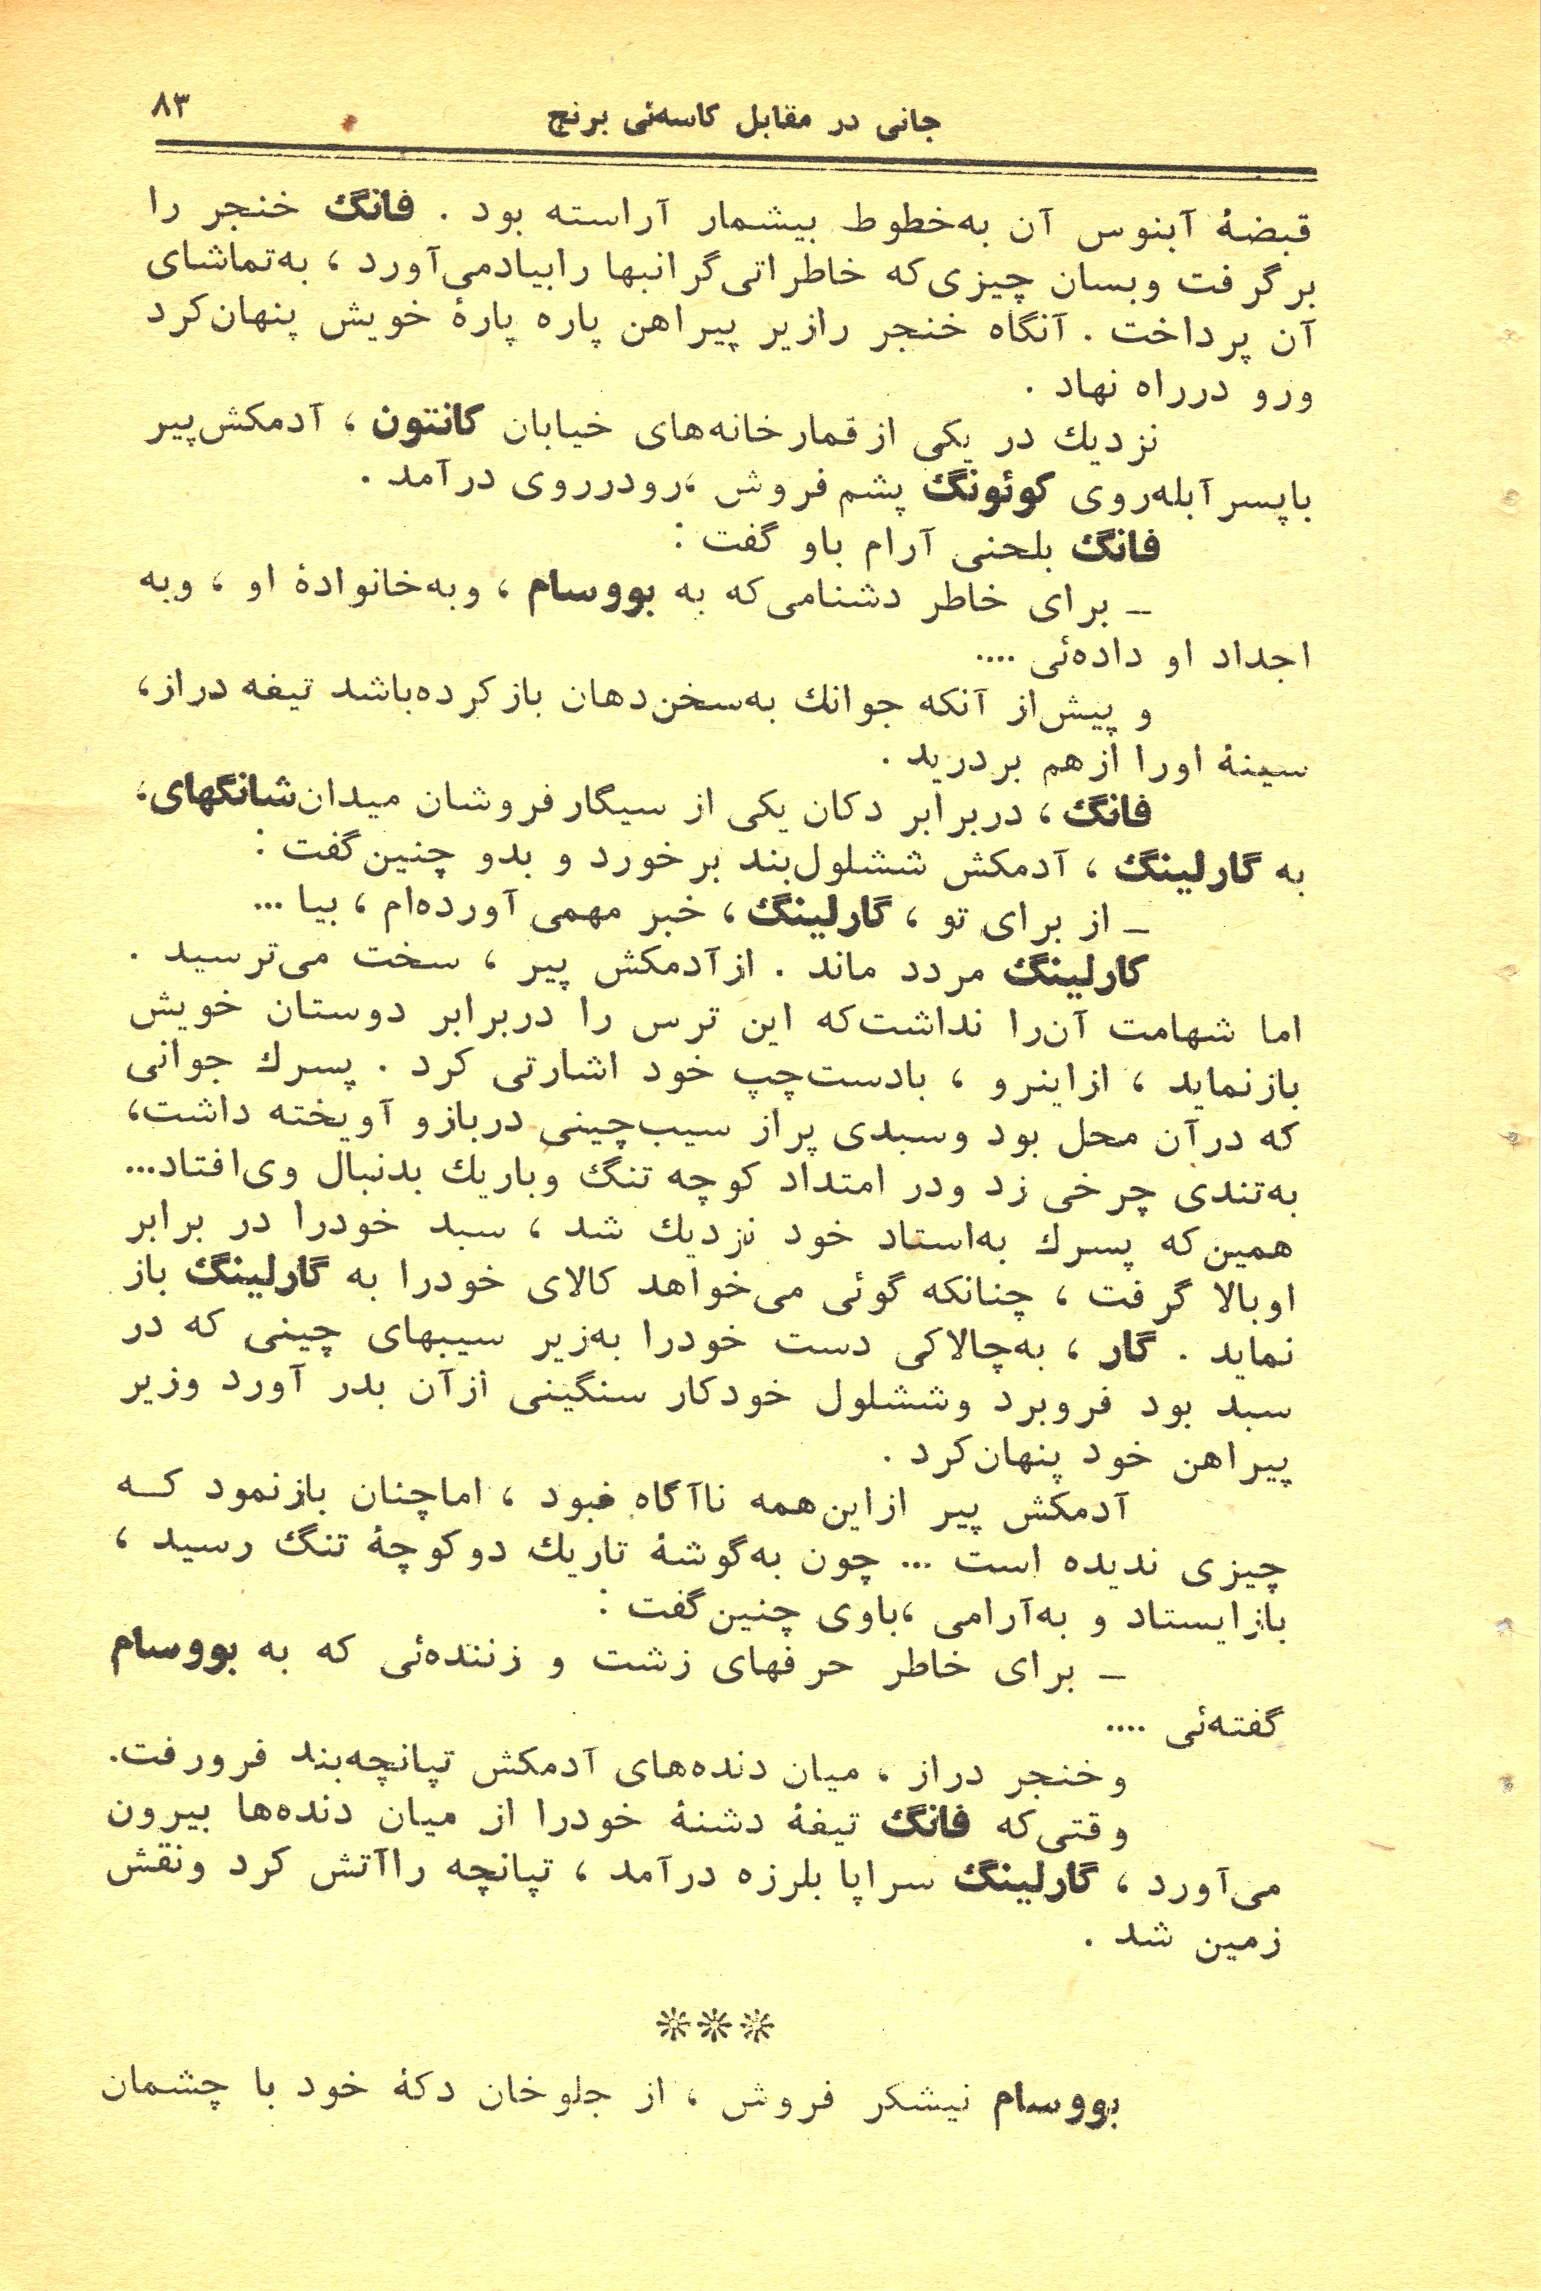 جانی در مقابل کاسه‌ئی برنج
۸۳
قبضهٔ آبنوس آن به‌خطوط بیشمار آراسته بود . فانگ خنجر را
برگرفت وبسان چیزی‌که خاطراتی‌گرانبها رابیادمی‌آورد ، به‌تماشای
آن پرداخت . آنگاه خنجر رازیر پیراهن پاره پارهٔ خویش پنهان‌کرد
ورو درراه نهاد .
نزدیك در یکی ازقمارخانه‌های خیابان کانتون ، آدمکش‌پیر
باپسرآبله‌روی کوئونگ پشم فروش ،رودرروی درآمد .
فانگ بلحنی آرام باو گفت :
ـ برای خاطر دشنامی‌که به بووسام ، وبه‌خانوادهٔ او ، وبه
اجداد او داده‌ئی ....
و پیش‌از آنکه جوانك به‌سخن‌دهان بازکرده‌باشد تیغه دراز،
سینهٔ اورا ازهم بردرید .
فانگ ، دربرابر دکان یکی از سیگارفروشان میدان‌شانگهای،
به گارلینگ ، آدمکش ششلول‌بند برخورد و بدو چنین‌گفت :
ـ از برای تو ، گارلینگ ، خبر مهمی آورده‌ام ، بیا ...
کارلینگ مردد ماند . ازآدمکش پیر ، سخت می‌ترسید .
اما شهامت آن‌را نداشت‌که این ترس را دربرابر دوستان خویش
بازنماید ، ازاینرو ، بادست‌چپ خود اشارتی کرد . پسرك جوانی
که درآن محل بود وسبدی پراز سیب‌چینی دربازو آویخته داشت،
به‌تندی چرخی زد ودر امتداد کوچه تنگ وباریك بدنبال وی‌افتاد...
همین‌که پسرك به‌استاد خود نزدیك شد ، سبد خودرا در برابر
اوبالا گرفت ، چنانکه گوئی می‌خواهد کالای خودرا به گارلینگ باز
نماید . گار ، به‌چالاکی دست خودرا به‌زیر سیبهای چینی که در
سبد بود فروبرد وششلول خودکار سنگینی ازآن بدر آورد وزیر
پیراهن خود پنهان‌کرد .
آدمکش پیر ازاین‌همه ناآگاه نبود ، اماچنان بازنمود کـه
چیزی ندیده است ... چون به‌گوشهٔ تاریك دوکوچهٔ تنگ رسید ،
بازایستاد و به‌آرامی ،باوی چنین‌گفت :
ـ برای خاطر حرفهای زشت و زننده‌ئی که به بووسام
گفته‌ئی ....
وخنجر دراز ، میان دنده‌های آدمکش تپانچه‌بند فرورفت.
وقتی‌که فانگ تیغهٔ دشنهٔ خودرا از میان دنده‌ها بیرون
می‌آورد ، گارلینگ سراپا بلرزه درآمد ، تپانچه راآتش کرد ونقش
زمین شد .
***
بووسام نیشکر فروش ، از جلوخان دکهٔ خود با چشمان